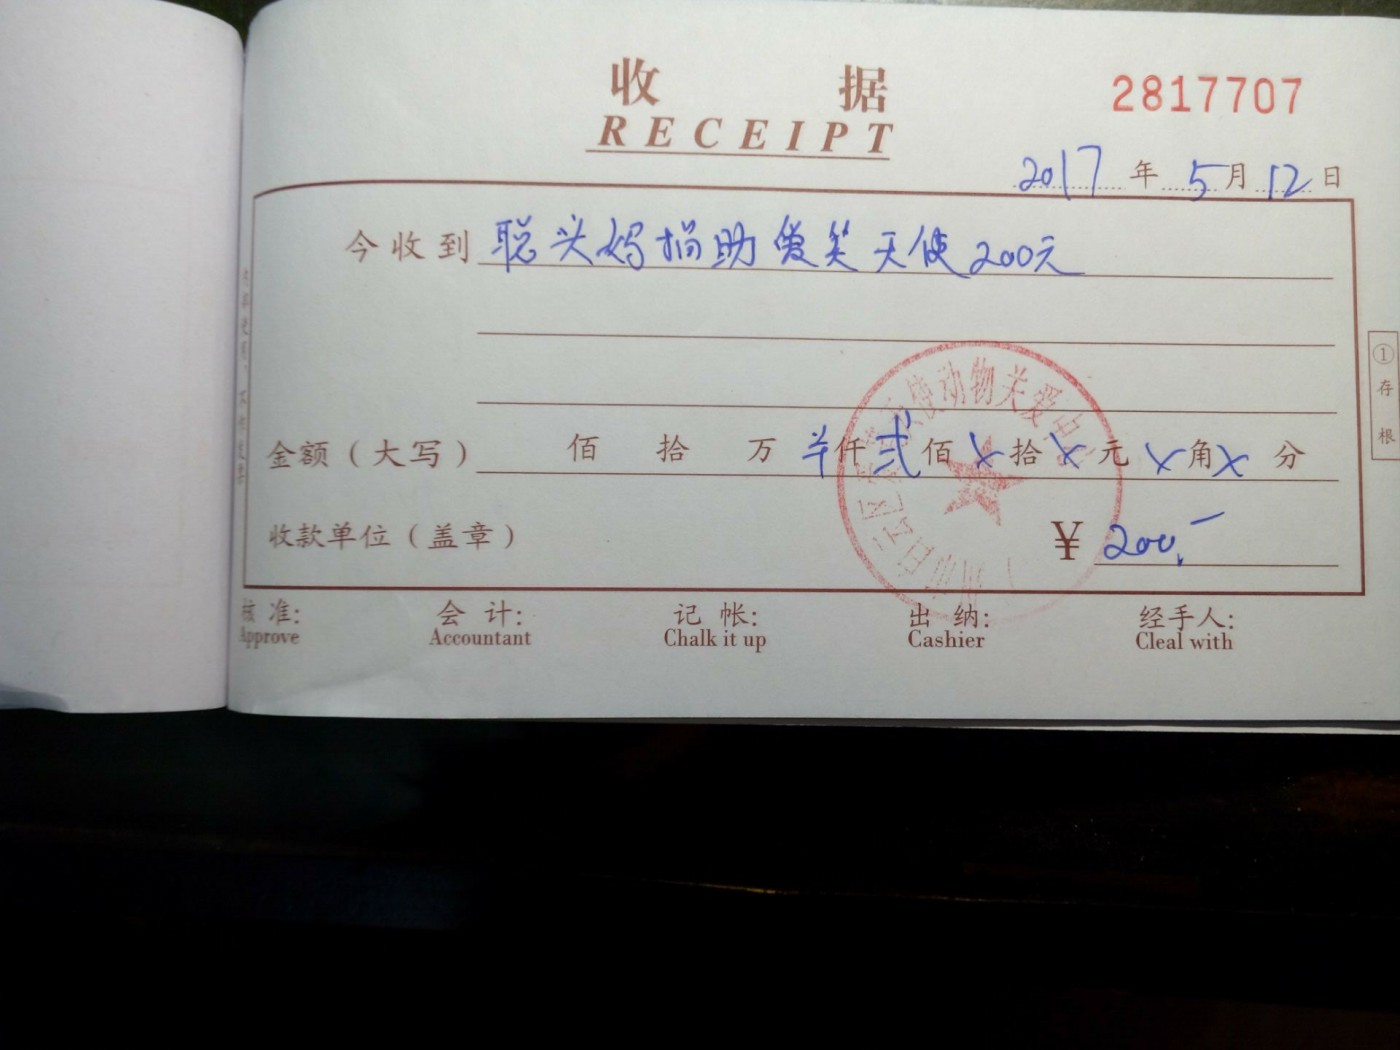 收 据
RECEIPT
2817707
2017 年 5 月 12 日
今收到 聪头妈捐助爱笑天使200元
金额（大写） 佰 拾 万 羊仟贰佰 X 拾 X 元 X 角 X 分
使动物关爱
白云区
收款单位（盖章） ¥ 200.—
核 准: 会 计: 记 帐: 出 纳: 经手人:
Approve Accountant Chalk it up Cashier Cleal with
①存根